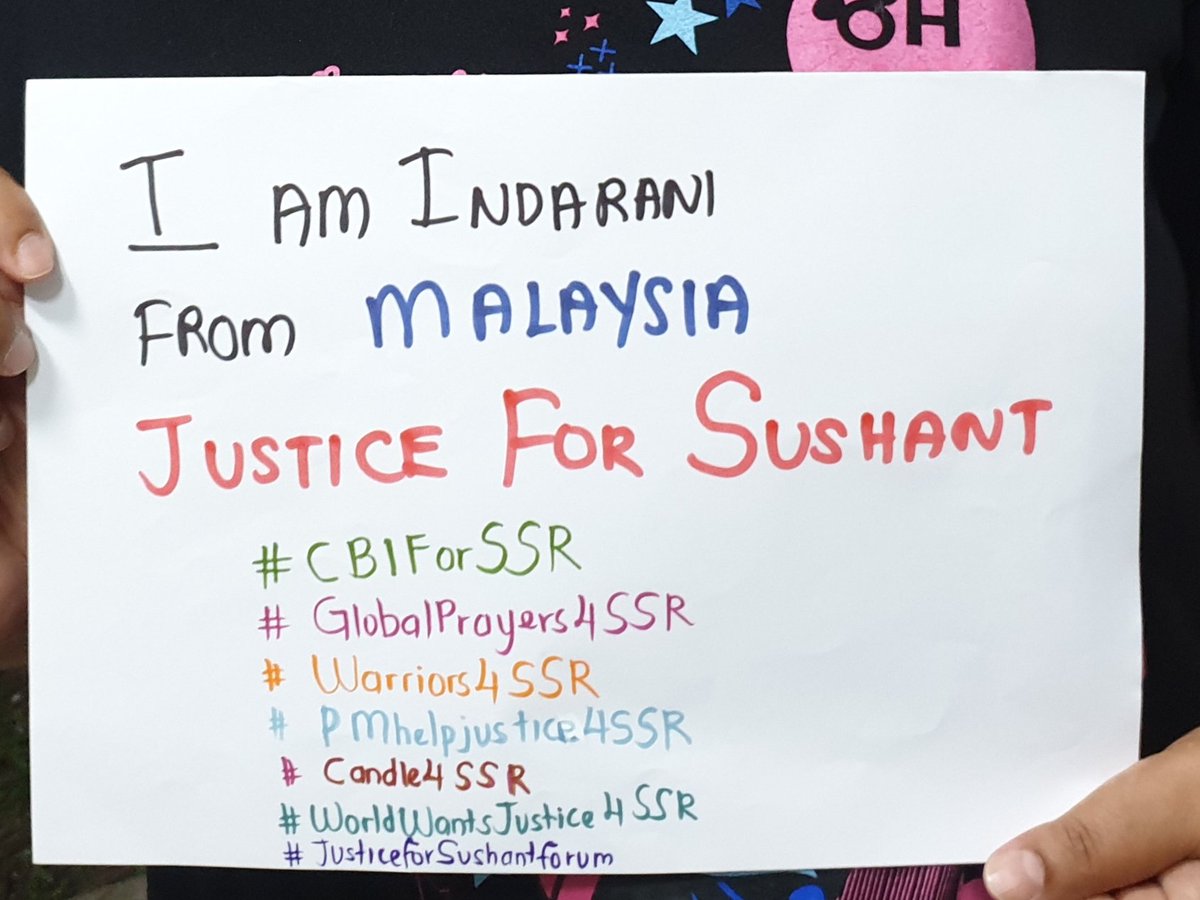 OH
I AM INDARANI
FROM MALAYSIA
JUSTICE FOR SUSHANT
#CBIForSSR
# GlobalPrayers4SSR
# Warriors4SSR
# PMhelpjustice4SSR
# Candle4SSR
#WorldWantsJustice4SSR
# JusticeforSushantforum